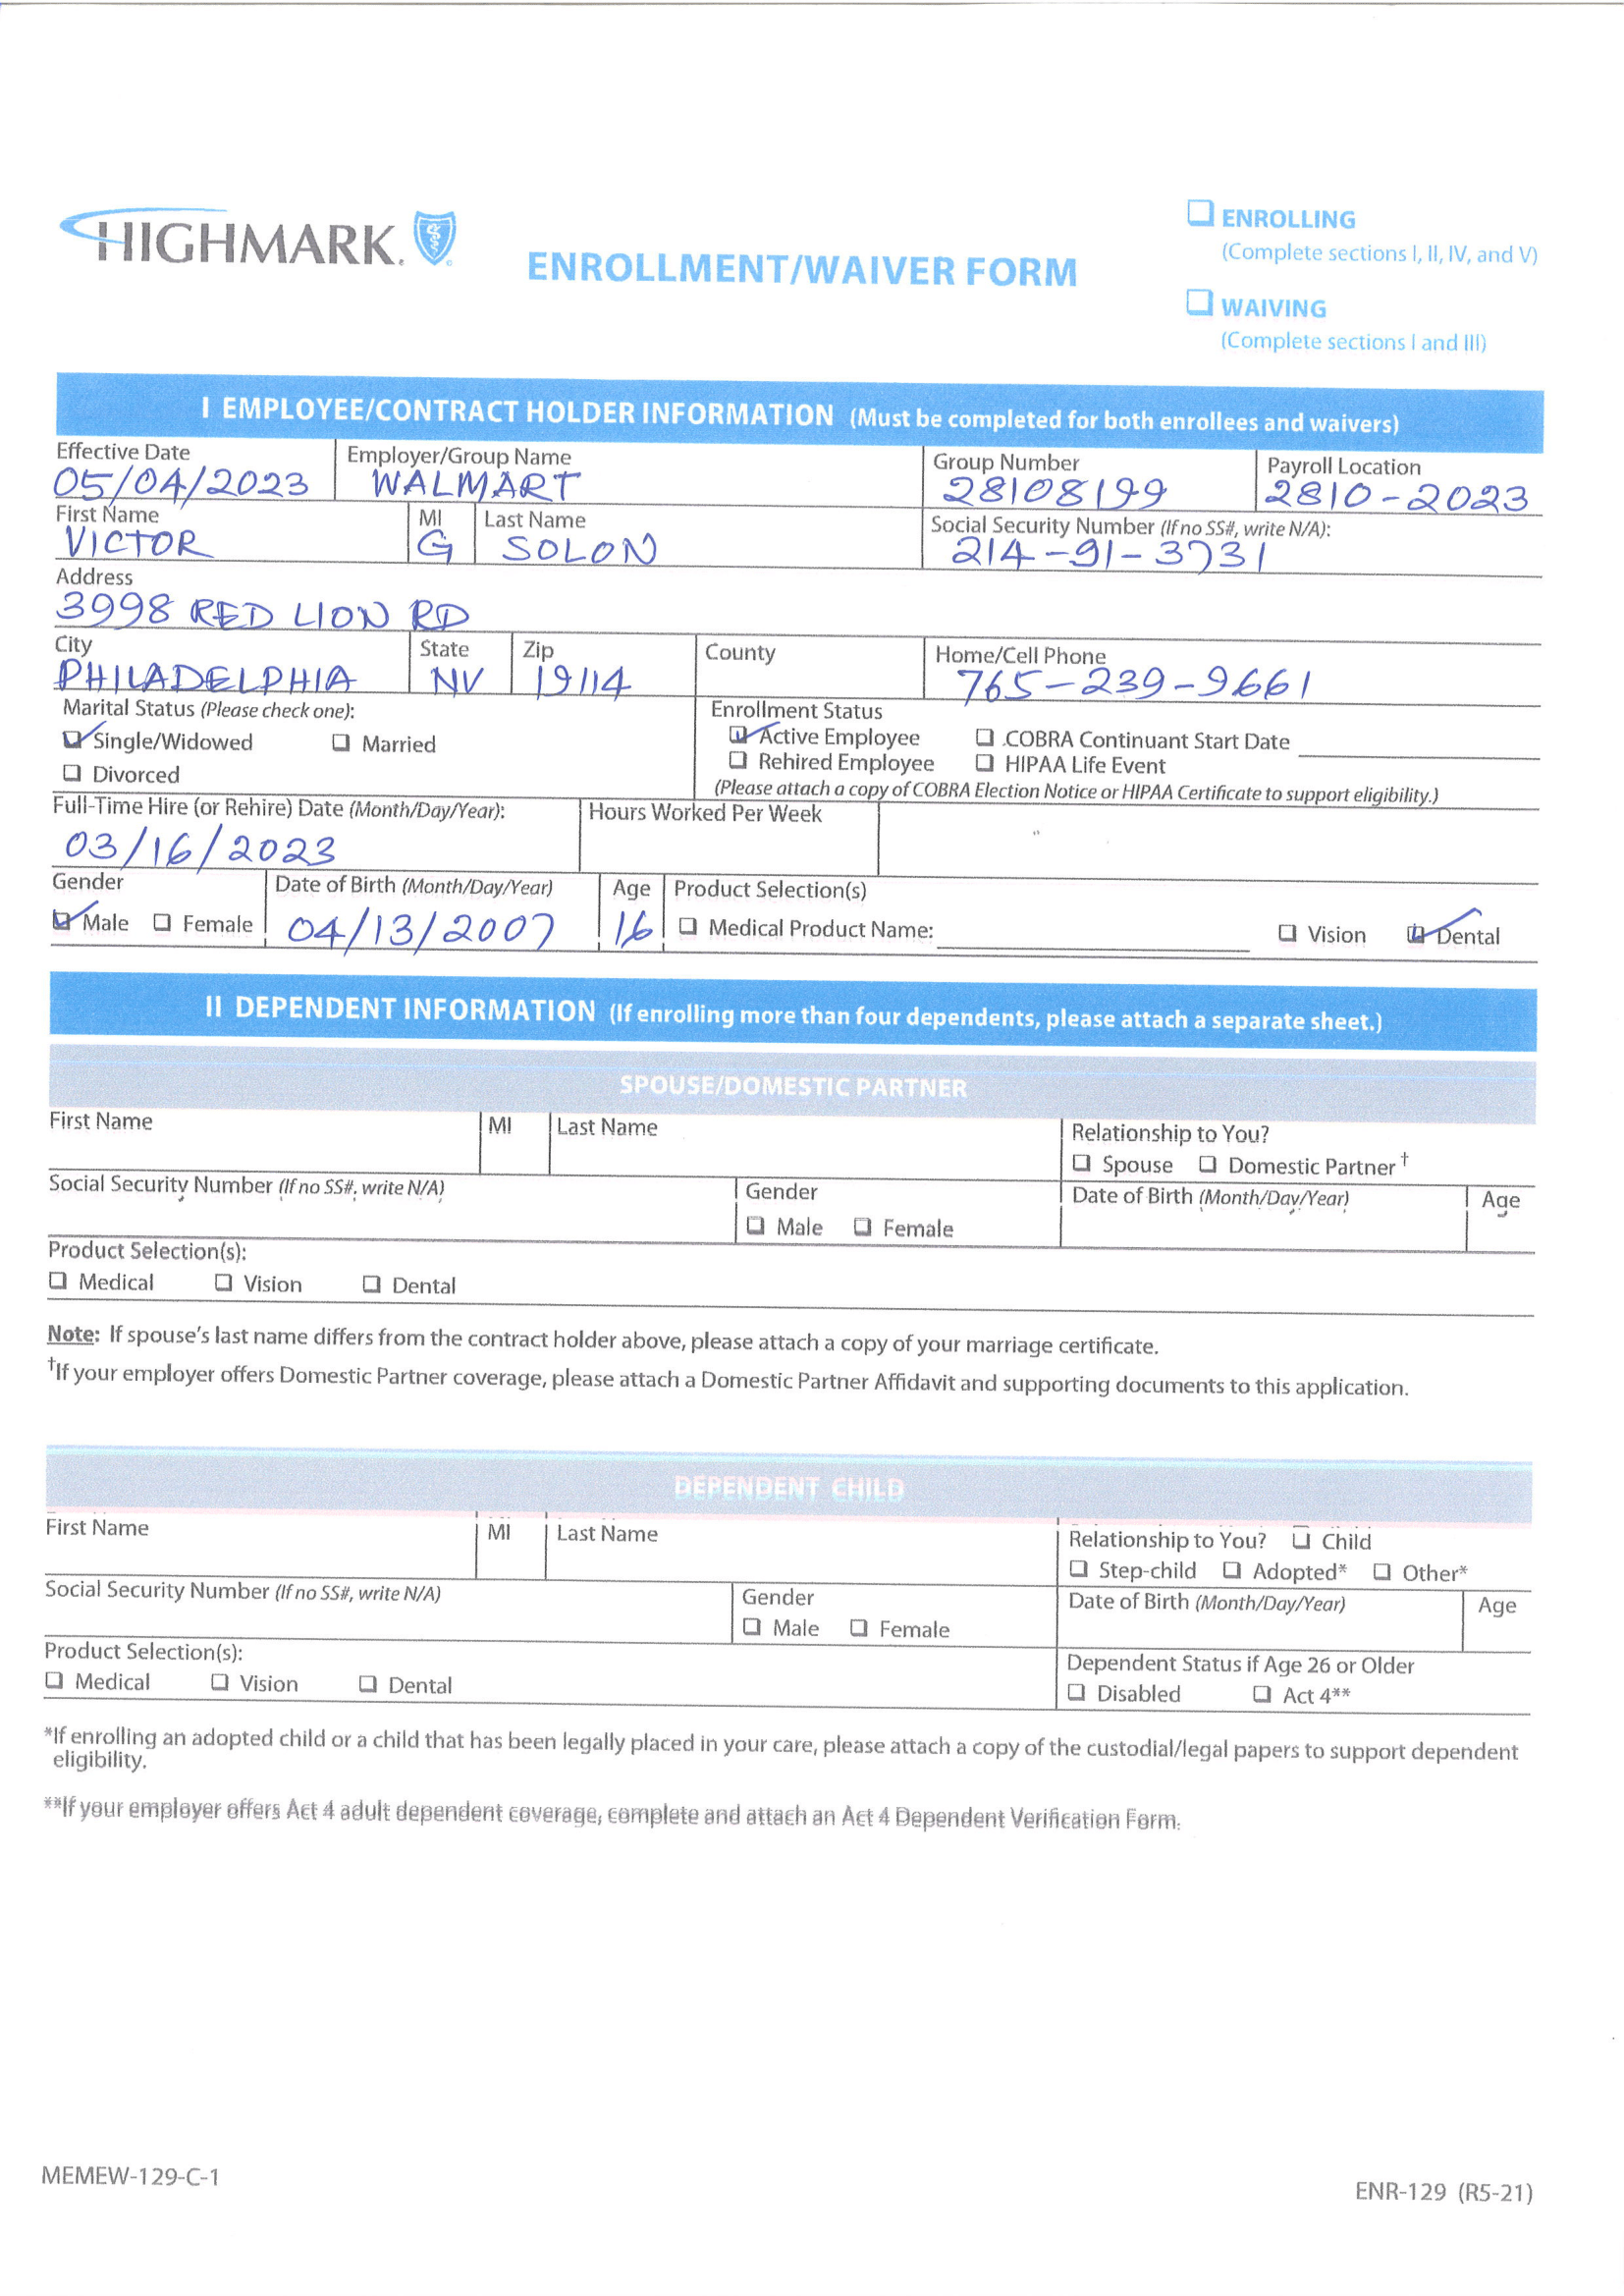 HIGHMARK.
ENROLLMENT/WAIVER FORM
❑ ENROLLING
(Complete sections I, II, IV, and V)
❑ WAIVING
(Complete sections I and III)
I EMPLOYEE/CONTRACT HOLDER INFORMATION (Must be completed for both enrollees and waivers)
Effective Date Employer/Group Name Group Number Payroll Location
05/04/2023 WALMART 28108199 2810-2023
First Name MI Last Name Social Security Number (If no SS#, write N/A):
VICTOR G SOLON 214-91-3731
Address
3998 RED LION RD
City State Zip County Home/Cell Phone
PHILADELPHIA NV 19114 765-239-9661
Marital Status (Please check one): Enrollment Status
☑ Single/Widowed ❑ Married ☑ Active Employee ❑ COBRA Continuant Start Date
❑ Divorced ❑ Rehired Employee ❑ HIPAA Life Event
(Please attach a copy of COBRA Election Notice or HIPAA Certificate to support eligibility.)
Full-Time Hire (or Rehire) Date (Month/Day/Year): Hours Worked Per Week
03/16/2023
Gender Date of Birth (Month/Day/Year) Age Product Selection(s)
☑ Male ❑ Female 04/13/2007 16 ❑ Medical Product Name: ❑ Vision ☑ Dental
II DEPENDENT INFORMATION (If enrolling more than four dependents, please attach a separate sheet.)
SPOUSE/DOMESTIC PARTNER
First Name MI Last Name Relationship to You?
❑ Spouse ❑ Domestic Partner†
Social Security Number (If no SS#, write N/A) Gender Date of Birth (Month/Day/Year) Age
❑ Male ❑ Female
Product Selection(s):
❑ Medical ❑ Vision ❑ Dental
Note: If spouse's last name differs from the contract holder above, please attach a copy of your marriage certificate.
†If your employer offers Domestic Partner coverage, please attach a Domestic Partner Affidavit and supporting documents to this application.
DEPENDENT CHILD
First Name MI Last Name Relationship to You? ❑ Child
❑ Step-child ❑ Adopted* ❑ Other*
Social Security Number (If no SS#, write N/A) Gender Date of Birth (Month/Day/Year) Age
❑ Male ❑ Female
Product Selection(s): Dependent Status if Age 26 or Older
❑ Medical ❑ Vision ❑ Dental ❑ Disabled ❑ Act 4**
*If enrolling an adopted child or a child that has been legally placed in your care, please attach a copy of the custodial/legal papers to support dependent
eligibility.
**If your employer offers Act 4 adult dependent coverage, complete and attach an Act 4 Dependent Verification Form.
MEMEW-129-C-1
ENR-129 (R5-21)